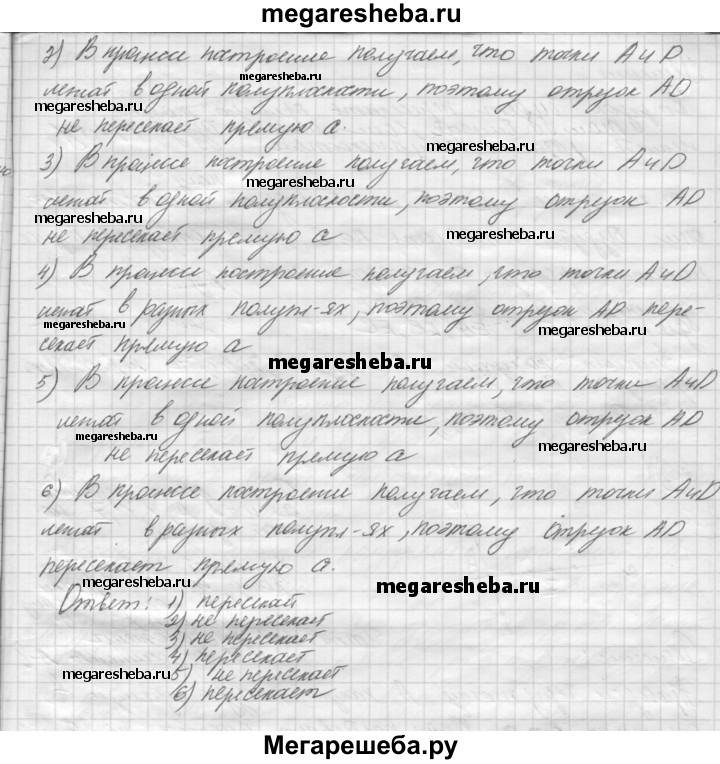 megaresheba.ru
2) В процессе построение получаем, что точки A и D
megaresheba.ru
лежат в одной полуплоскости, поэтому отрезок AD
megaresheba.ru
не пересекает прямую a.
megaresheba.ru
3) В процессе построение получаем, что точки A и D
megaresheba.ru
лежат в одной полуплоскости, поэтому отрезок AD
megaresheba.ru
megaresheba.ru
не пересекает прямую a
4) В процессе построение получаем, что точки A и D
лежат в разных полупл-ях, поэтому отрезок AD пере-
megaresheba.ru
megaresheba.ru
секает прямую a
megaresheba.ru
5) В процессе построение получаем, что точки A и D
лежат в одной полуплоскости, поэтому отрезок AD
megaresheba.ru
megaresheba.ru
не пересекает прямую a
6) В процессе построении получаем, что точки A и D
лежат в разных полупл-ях, поэтому отрезок AD
пересекает прямую a.
megaresheba.ru
megaresheba.ru
Ответ: 1) пересекает
2) не пересекает
3) не пересекает
4) пересекает
megaresheba.ru
5) не пересекает
6) пересекает
Мегарешеба.ру